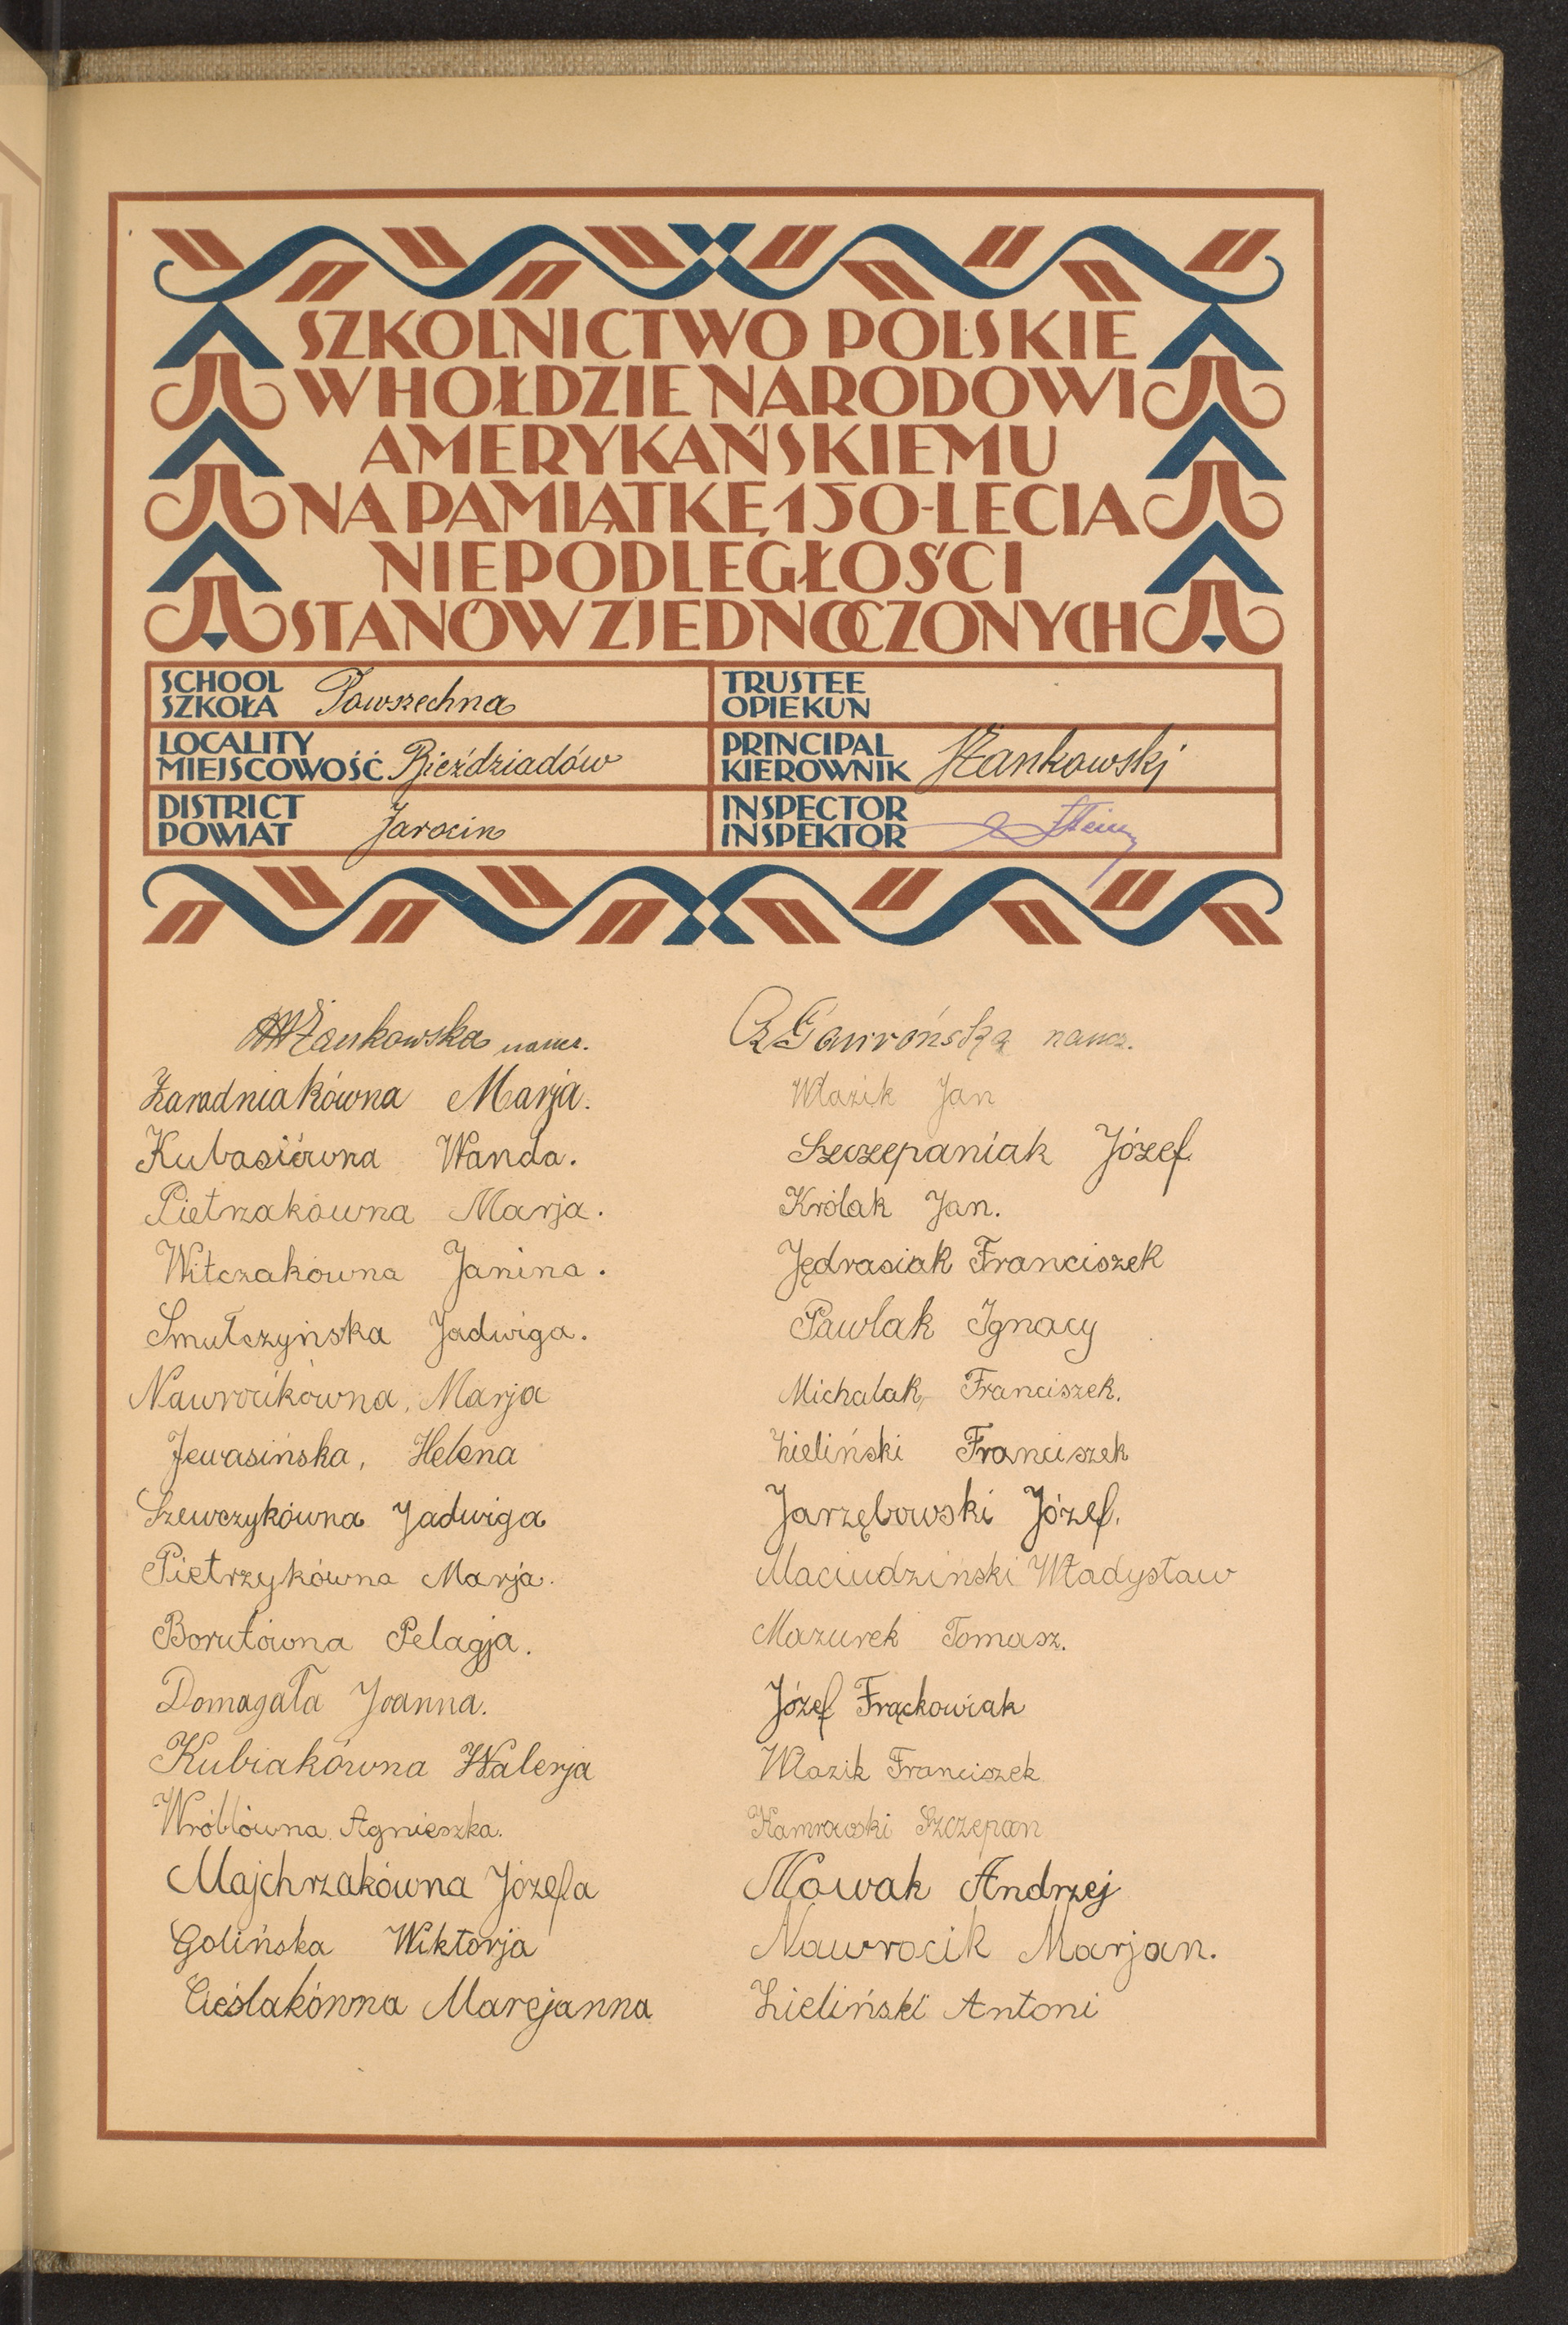 SZKOLNICTWO POLSKIE
W HOŁDZIE NARODOWI
AMERYKAŃSKIEMU
NA PAMIĄTKĘ 150-LECIA
NIEPODLEGŁOŚCI
STANÓW ZJEDNOCZONYCH
SCHOOL
SZKOŁA Powszechna
TRUSTEE
OPIEKUN
LOCALITY
MIEJSCOWOŚĆ Bieździadów
PRINCIPAL
KIEROWNIK Żankowski
DISTRICT
POWIAT Jarocin
INSPECTOR
INSPEKTOR
Żankowska naucz.
Cz Gawrońska naucz.
Zaradniakówna Marja.
Kubasiówna Wanda.
Pietrzakówna Marja.
Witczakówna Janina.
Smułczyńska Jadwiga.
Nawrocikówna, Marja
Jewasińska, Helena
Szewczykówna Jadwiga
Pietrzykówna Marja.
Borutówna Pelagja.
Domagała Joanna.
Kubiakówna Walerja
Wróblówna Agnieszka.
Majchrzakówna Józefa
Golińska Wiktorja
Cieślakówna Marcjanna
Włazik Jan
Szczepaniak Józef.
Królak Jan.
Jędrasiak Franciszek
Pawlak Ignacy
Michalak, Franciszek.
Zieliński Franciszek
Jarzębowski Józef.
Maciudziński Władysław
Mazurek Tomasz.
Józef Frąckowiak
Włazik Franciszek
Kamrowski Szczepan
Nowak Andrzej
Nawrocik Marjan.
Zieliński Antoni